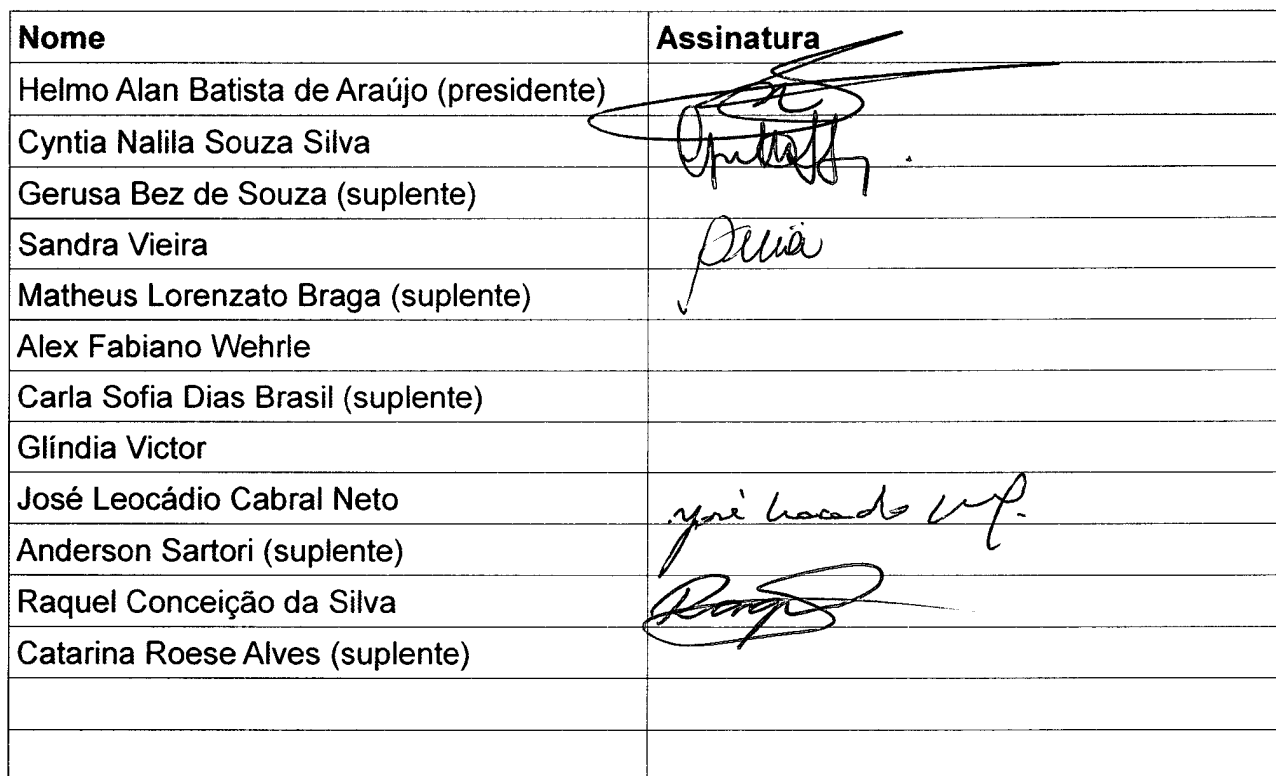 Nome Assinatura
Helmo Alan Batista de Araújo (presidente)
Cyntia Nalila Souza Silva
Gerusa Bez de Souza (suplente)
Sandra Vieira
Matheus Lorenzato Braga (suplente)
Alex Fabiano Wehrle
Carla Sofia Dias Brasil (suplente)
Glíndia Victor
José Leocádio Cabral Neto José
Anderson Sartori (suplente)
Raquel Conceição da Silva
Catarina Roese Alves (suplente)